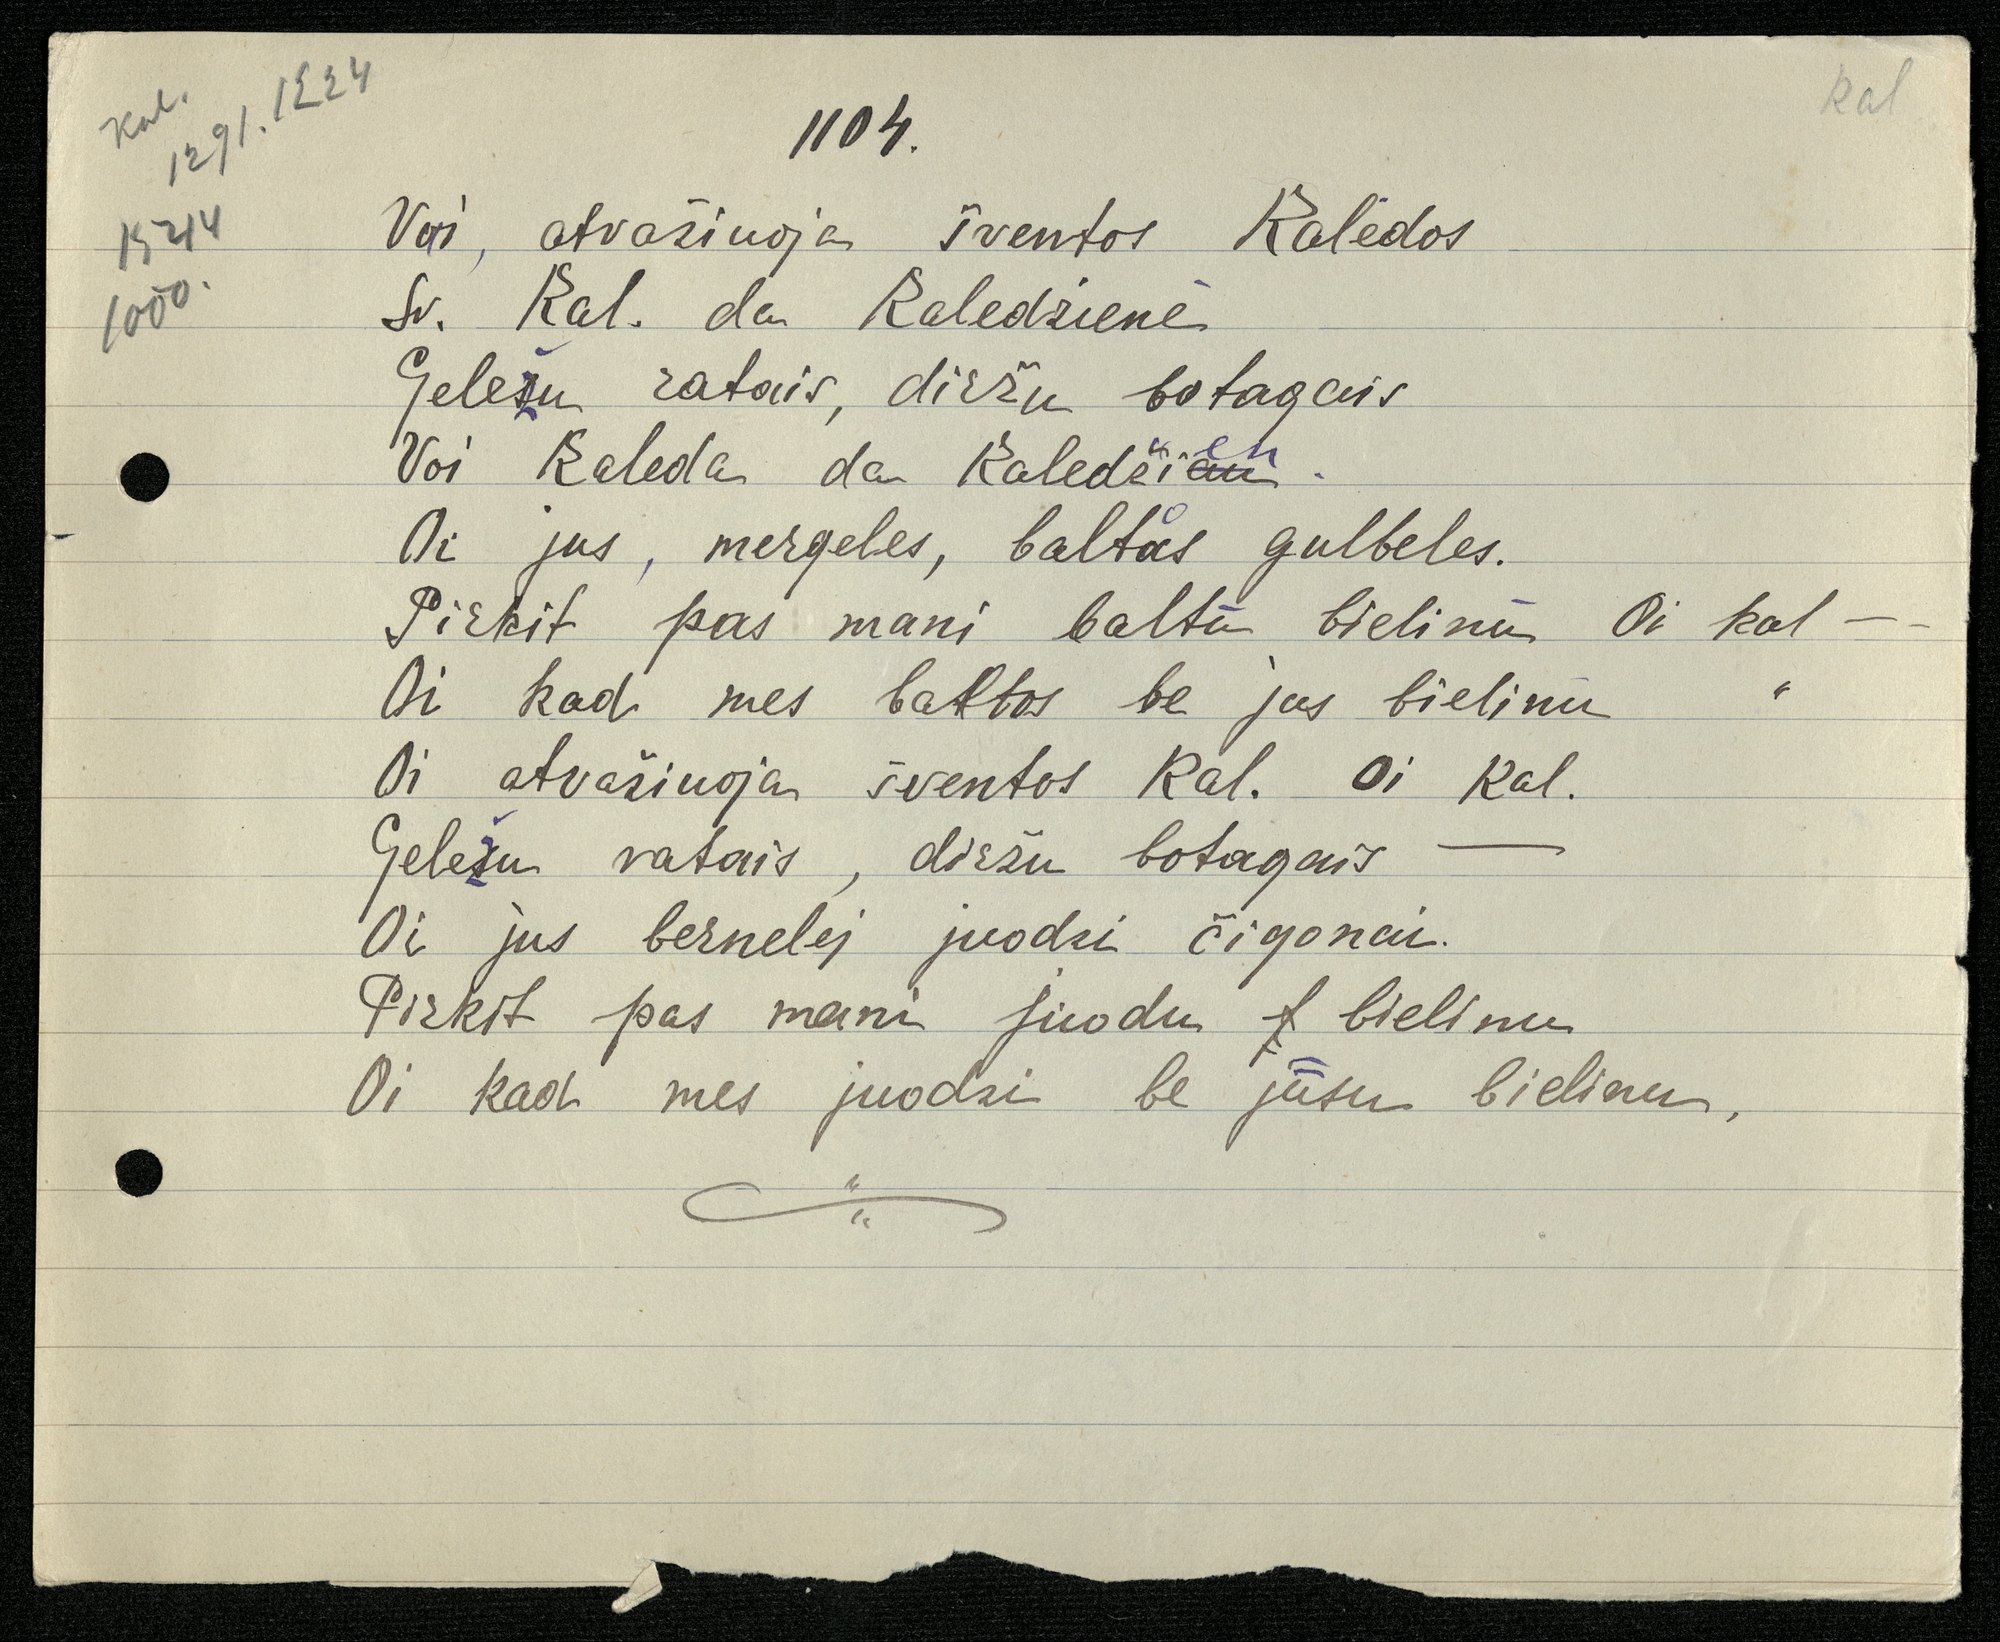 Kal.
1291. 1224
kal
1104.
1000.
Voi, atvažiuoja šventos Kalėdos
Šv. Kal. da Kaledzienė
Geležu ratais, diržu botagais
Voi Kaleda da Kaledžien.
Oi jus, mergeles, baltos gulbeles.
Pirkit pas mani baltū bielinū Oi kal —
Oi kad mes baltos be jus bielinu "
Oi atvažiuoja šventos Kal. Oi Kal.
Geležu ratais, diržu botagais —
Oi jus bernelej juodzi čigonai.
Pirkit pas mani juodu bielinu
Oi kad mes juodzi be jūsu bielinu,